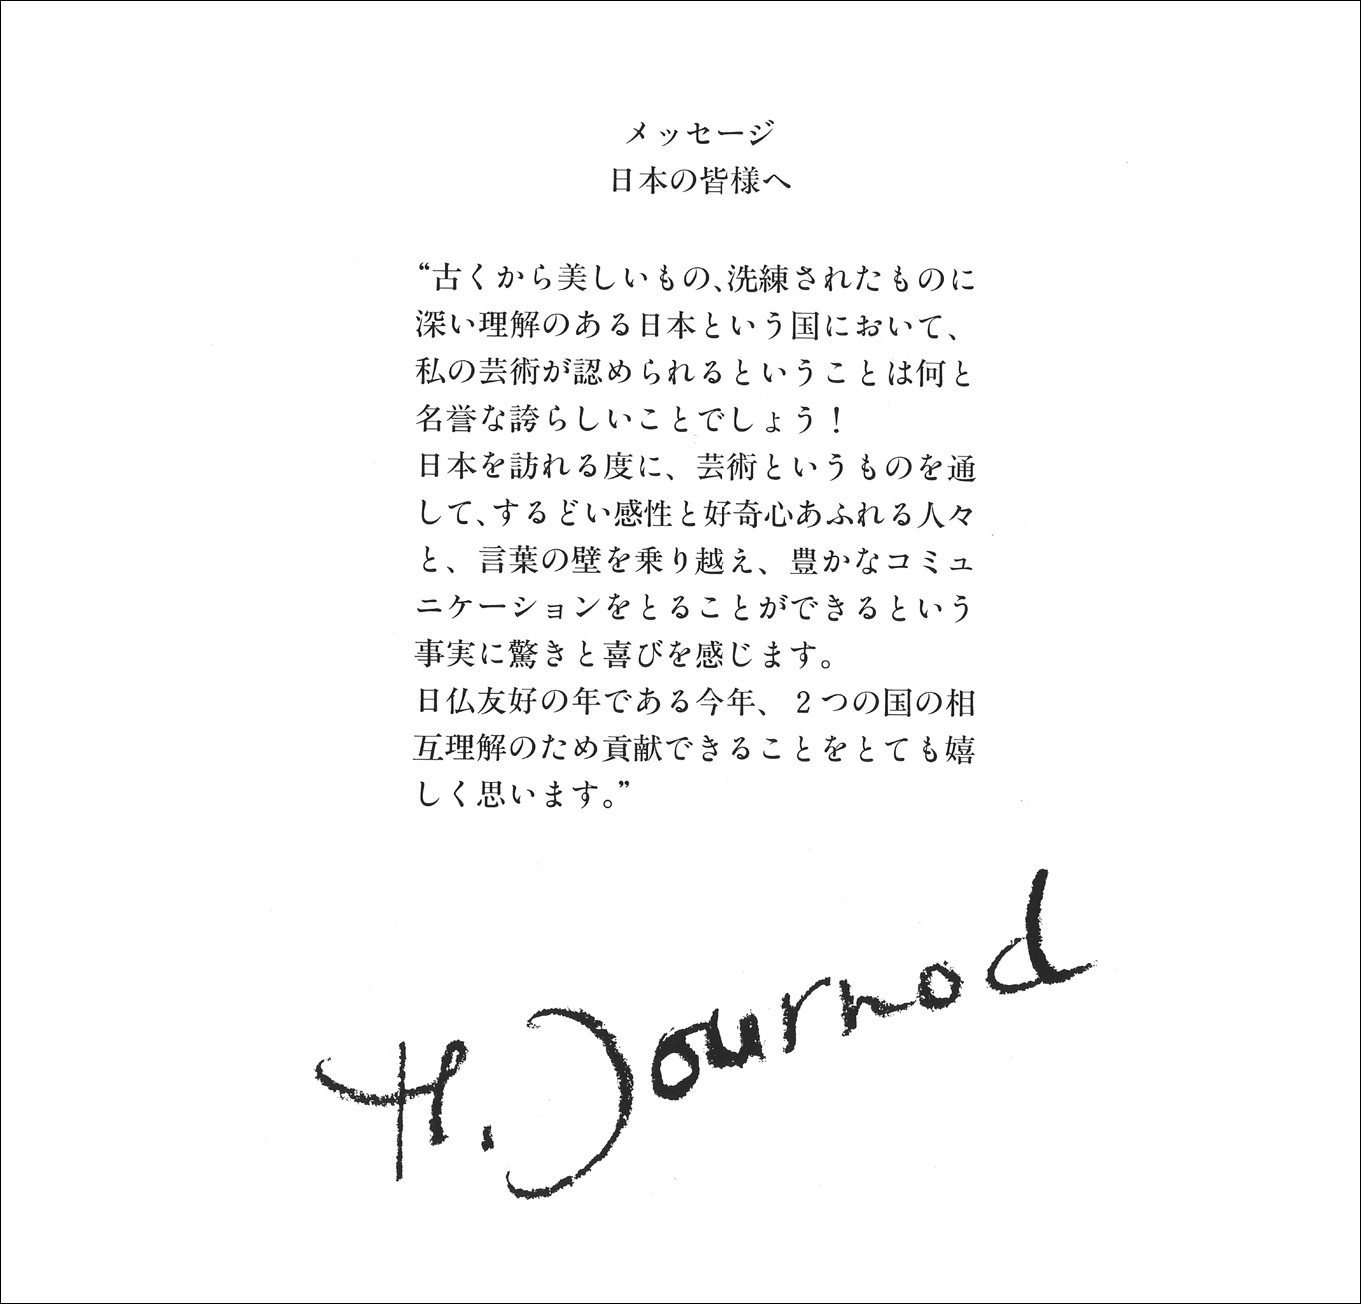 メッセージ
日本の皆様へ
“古くから美しいもの、洗練されたものに
深い理解のある日本という国において、
私の芸術が認められるということは何と
名誉な誇らしいことでしょう！
日本を訪れる度に、芸術というものを通
して、するどい感性と好奇心あふれる人々
と、言葉の壁を乗り越え、豊かなコミュ
ニケーションをとることができるという
事実に驚きと喜びを感じます。
日仏友好の年である今年、２つの国の相
互理解のため貢献できることをとても嬉
しく思います。”
H. Journod